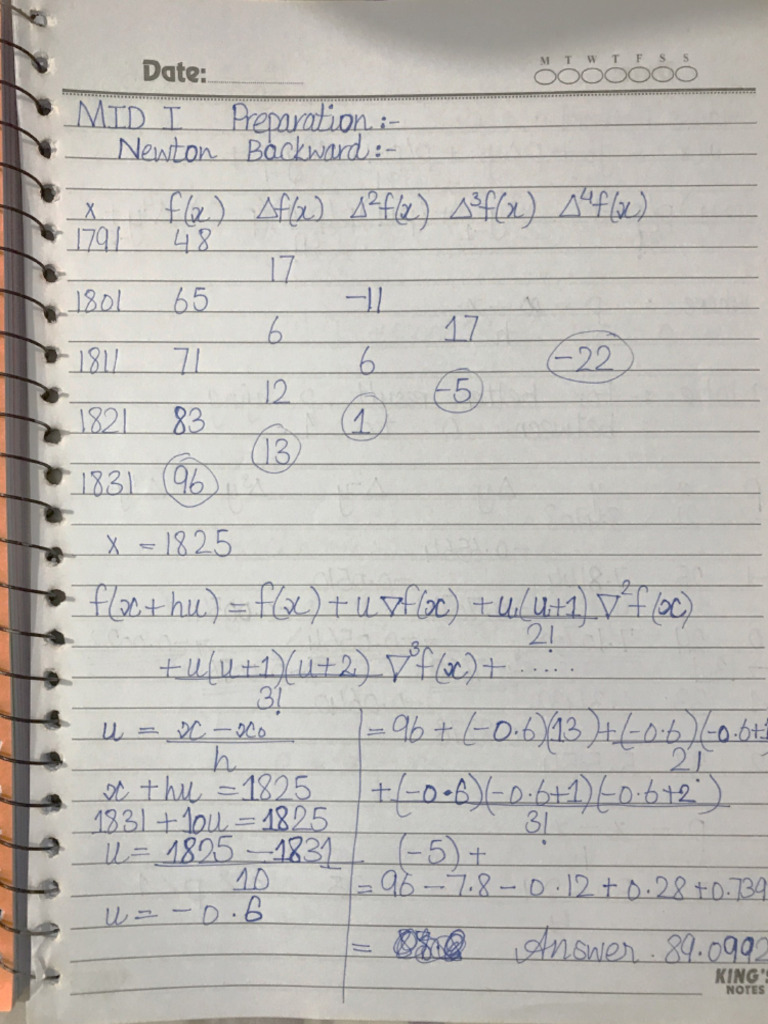 Date:
M T W T F S S
MID I Preparation :-
Newton Backward :-
x f(x) Δf(x) Δ²f(x) Δ³f(x) Δ⁴f(x)
1791 48
17
1801 65 -11
6 17
1811 71 6 -22
12 -5
1821 83 1
13
1831 96
x = 1825
f(x+hu) = f(x) + u∇f(x) + u(u+1) ∇²f(x)
2!
+ u(u+1)(u+2) ∇³f(x) + ......
3!
u = x - x₀
h
x + hu = 1825
1831 + 10u = 1825
u = 1825 - 1831
10
u = -0.6
= 96 + (-0.6)(13) + (-0.6)(-0.6+1
2!
+ (-0.6)(-0.6+1)(-0.6+2)
3!
(-5) +
= 96 - 7.8 - 0.12 + 0.28 + 0.739
= Answer . 89.0992
KING'S
NOTES